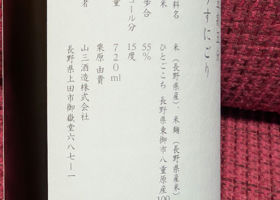 うすにごり
料名　米（長野県産）、米麹（長野県産米）
米　ひとごこち　長野県東御市八重原産100
歩合　55％
コール分　15度
量　720ml
栗原由貴
者　山三酒造株式会社
長野県上田市御嶽堂六八七ー一